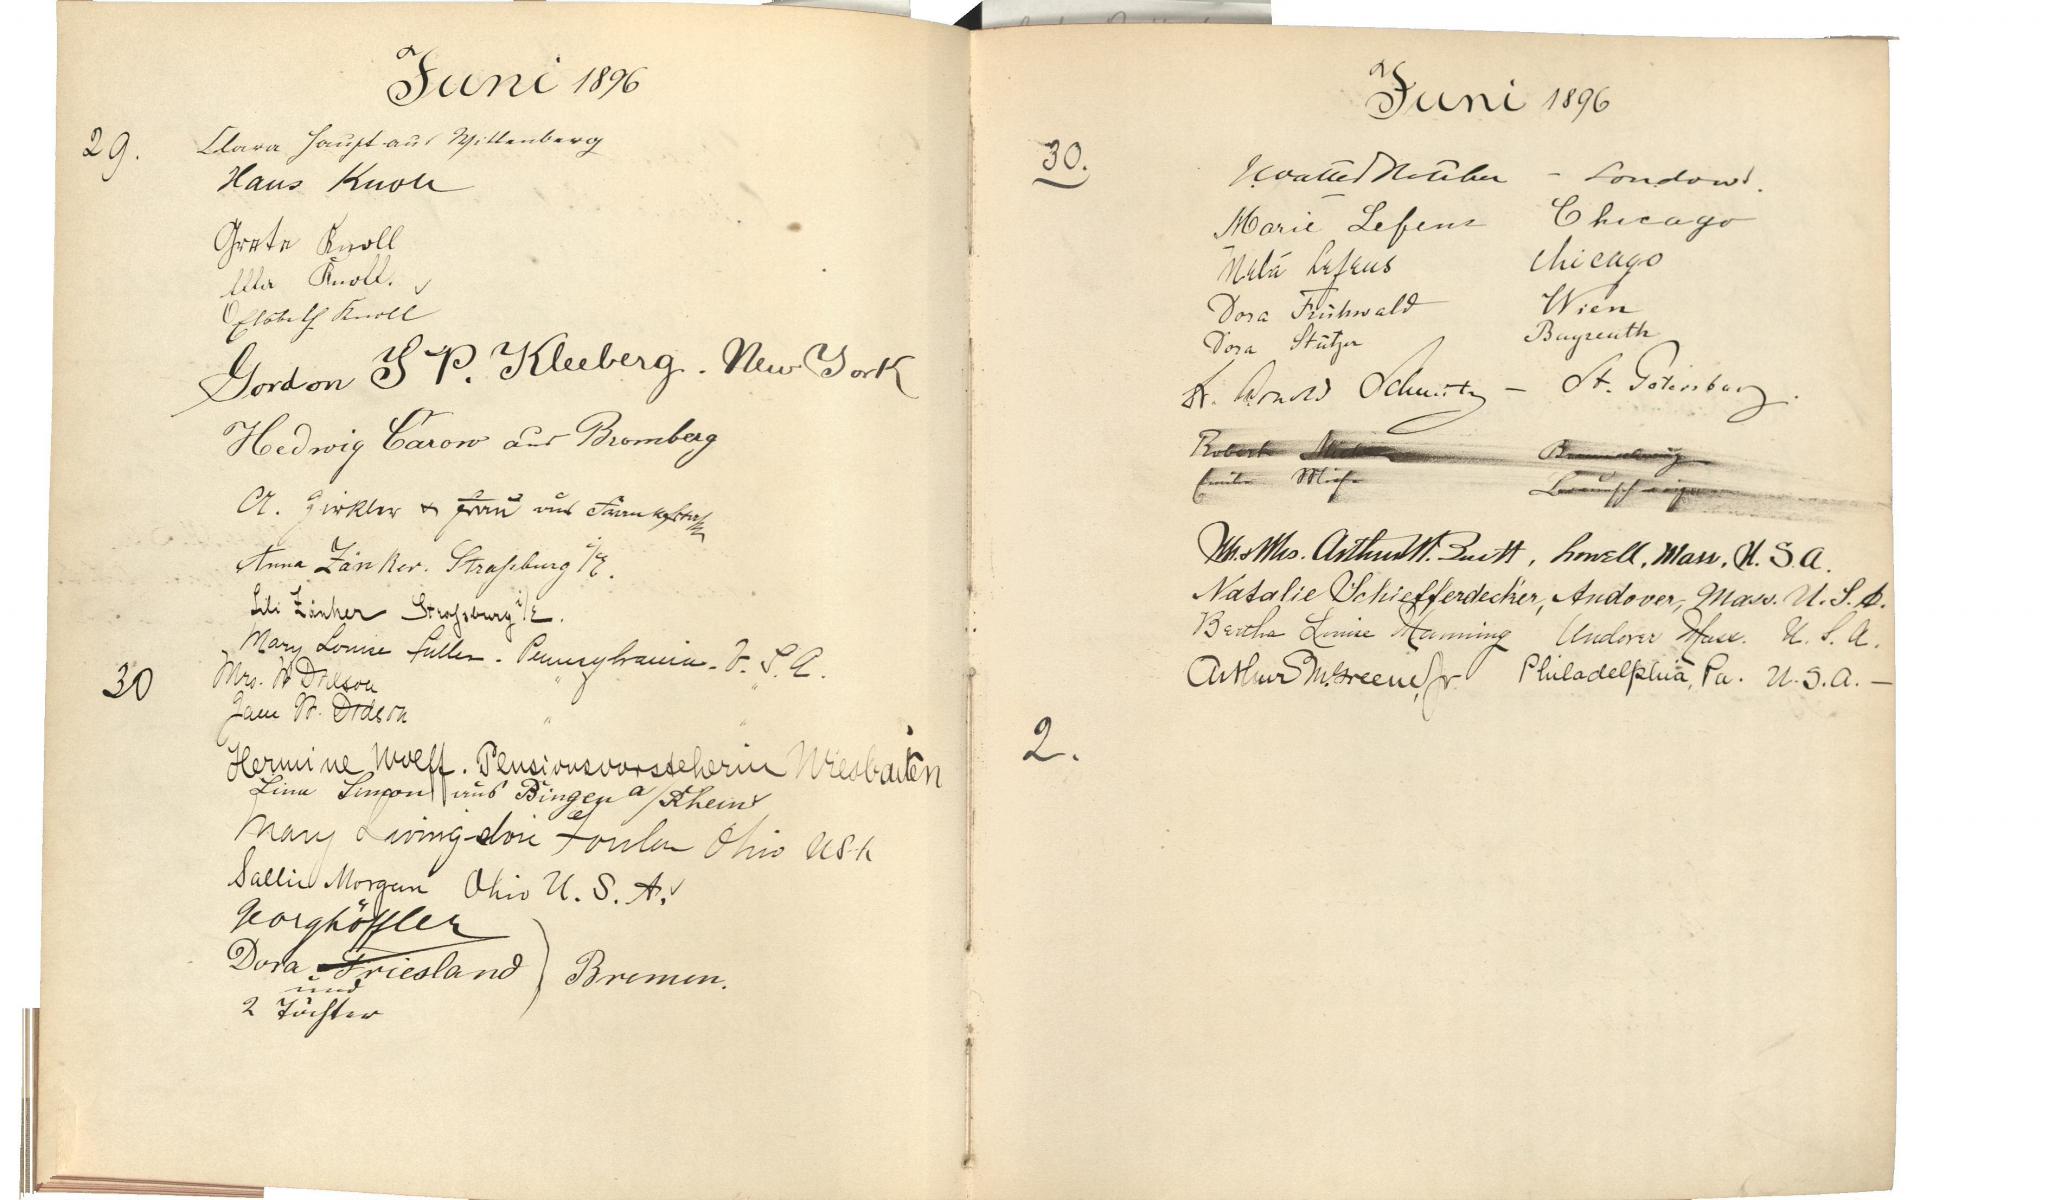 Juni 1896
29. Clara Haupt aus Wittenberg
Hans Knoll
Grete Knoll
Ella Knoll.
Elsbeth Knoll
Gordon S P. Kleeberg. New York
Hedwig Carow aus Bromberg
A. Girkler & Frau aus
Anna Zänker. Straßburg i/E.
Lili Zänker Straßburg i/E.
Mary Louise Fuller. Pennsylvania. U.S.A.
30 Mrs. W Dodson " "
Jane W. Dodson " "
Hermine Wolff. Pensionsvorsteherin Wiesbaden
Lina Simon aus Bingen a/Rhein
Mary Livingstone Ohio USA
Sallie Morgan Ohio U.S.A.
Dora Friesland Bremen.
und
2 Töchter
Juni 1896
30.
– London.
Marie Lefens Chicago
Meta Lefens Chicago
Dora Frühwald Wien
Dora Stützer Bayreuth
Arnold Schmitz – St. Petersburg.
Robert
Mr & Mrs. Arthur W. Lowell, Mass, U.S.A.
Natalie Schiefferdecker, Andover, Mass. U.S.A.
Bertha Louise Manning Andover Mass. U.S.A.
Arthur M. Greene, Jr. Philadelphia, Pa. U.S.A. –
2.